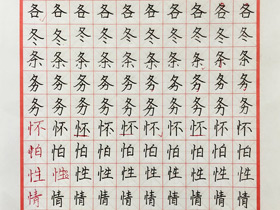 各各各各各各各各各各
冬冬冬冬冬冬冬冬冬冬
条条条条条条条条条条
务务务务务务务务务务
务务务务务务务务务务
怀怀怀怀怀怀怀怀怀怀
怕怕怕怕怕怕怕怕怕怕
性性性性性性性性性性
情情情情情情情情情情